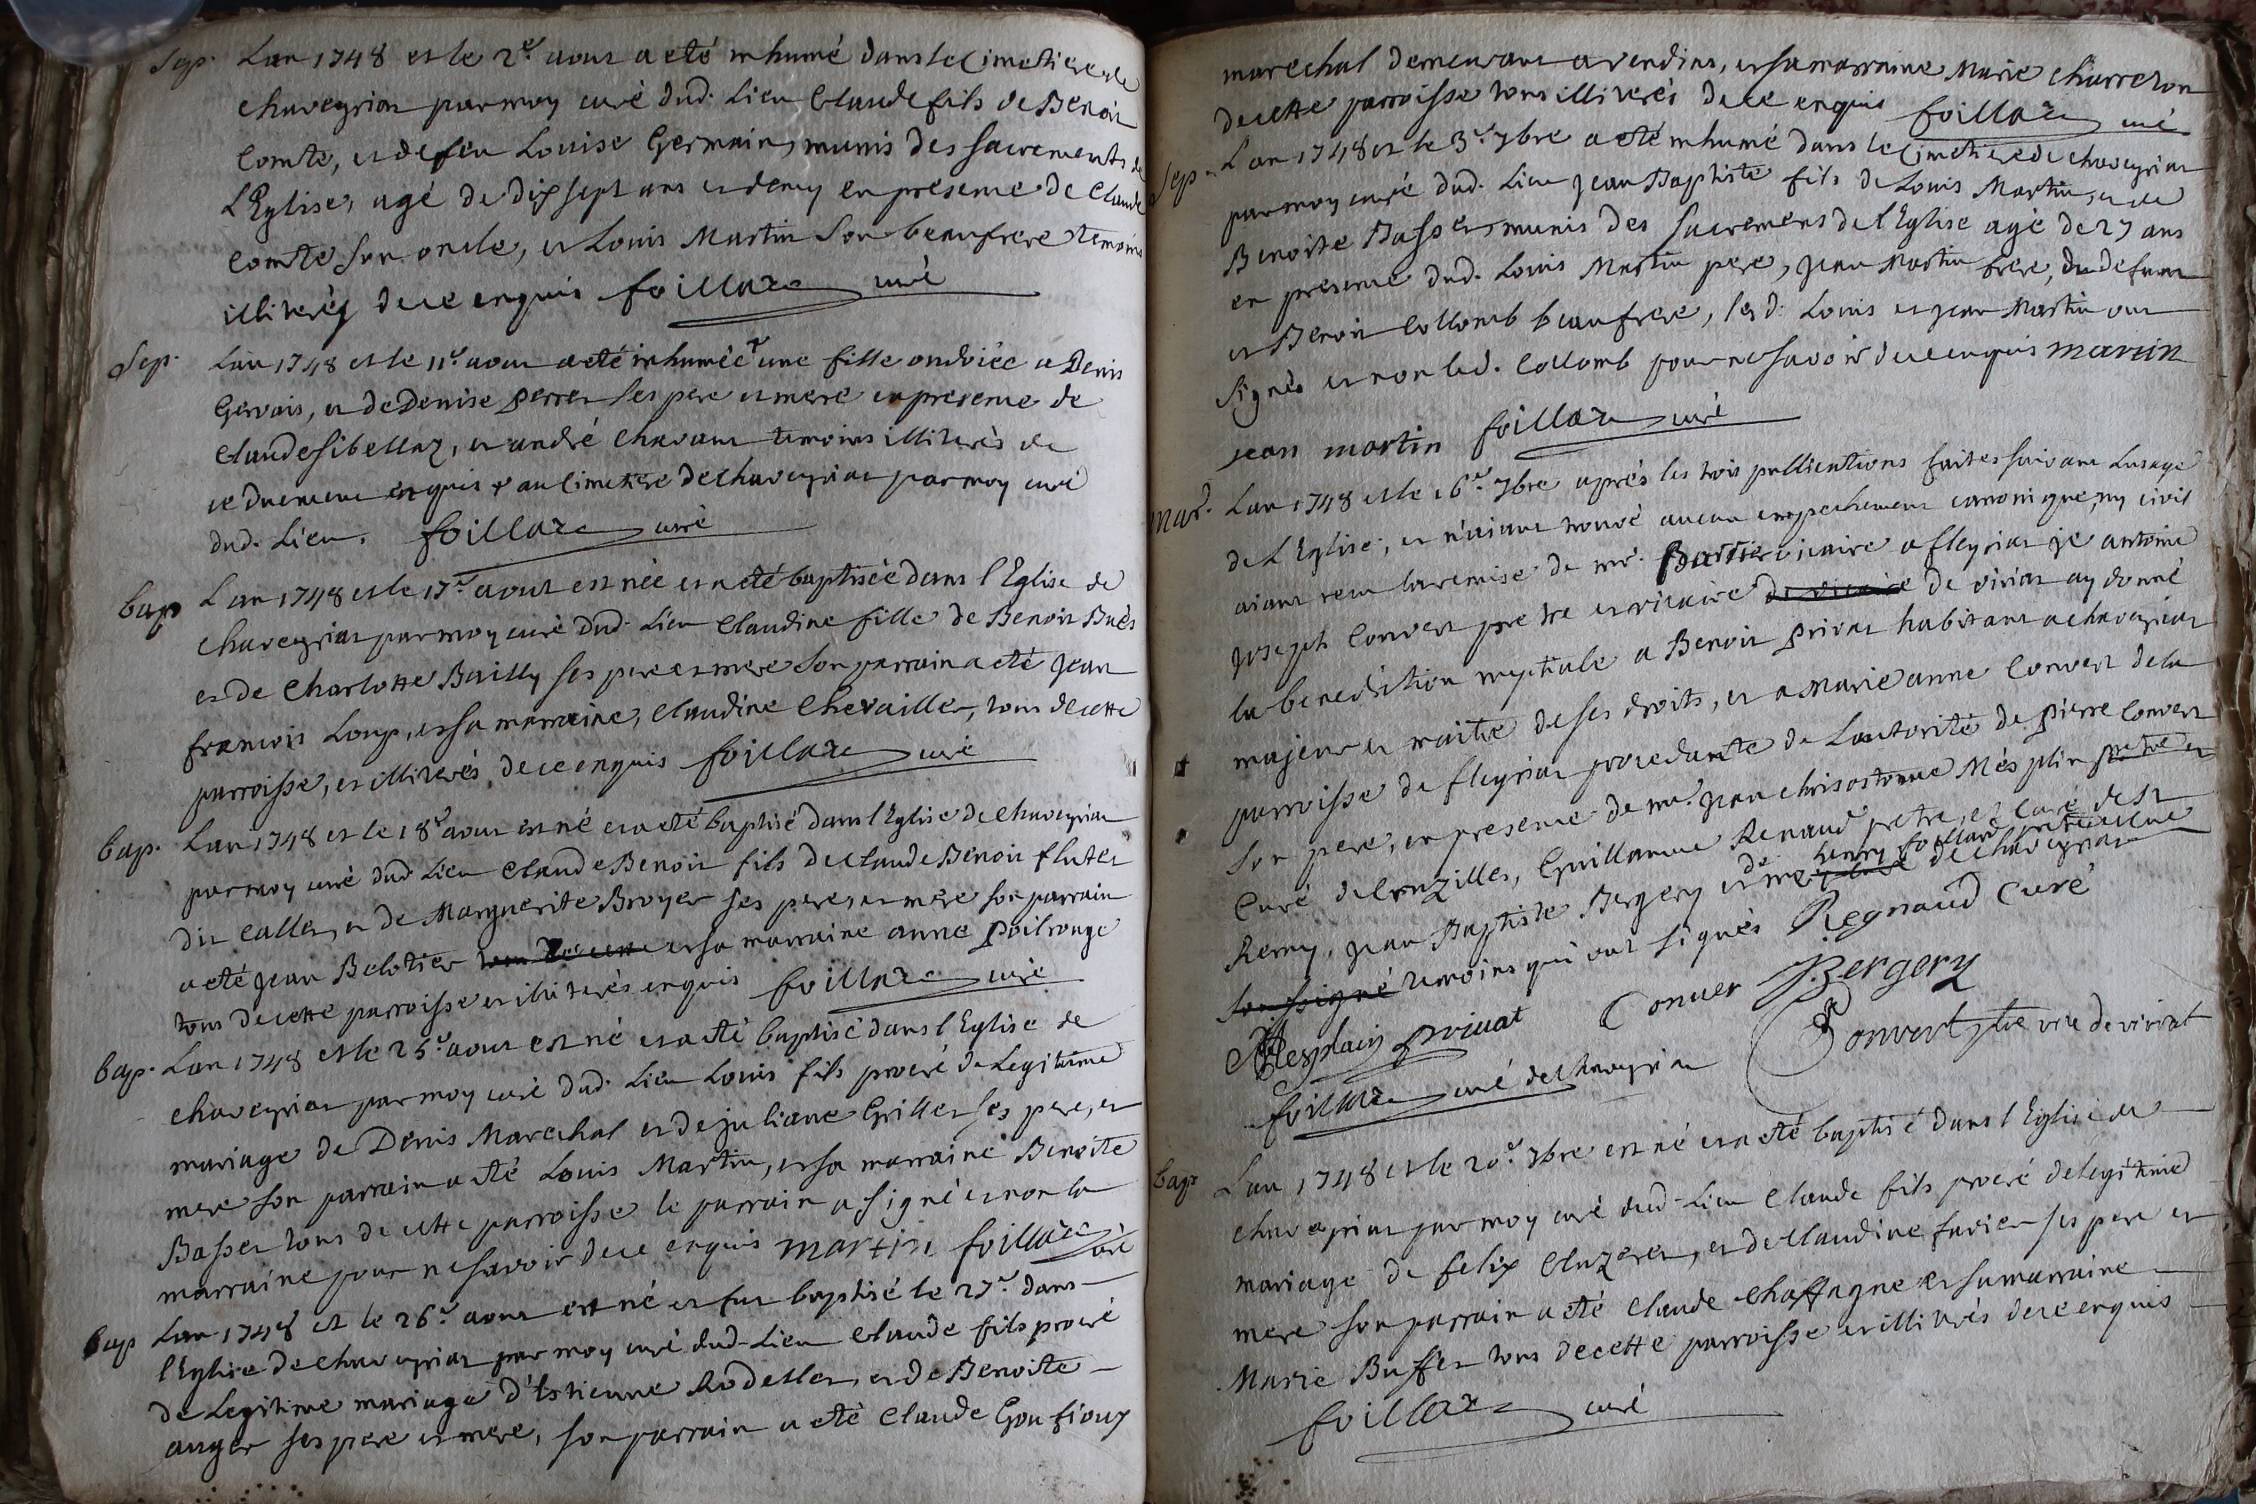 Sep. Lan 1748 et le 2e. aout a eté inhumé dans le Cimetiere de
chaveyriat par moy curé dud. Lieu Claude fils de Benoit
Comte, et de feu Louise Germain, munis des sacrements de
l'Eglise, agé de dix sept ans et demy en présence de Claude
Comte son oncle, et Louis Martin son beaufrere temoins
illiterés de ce enquis foillard curé
Sep. Lan 1748 et le 11e. aout a eté inhumée une fille ondoiée a Denis
Gervais, et de Denise perret ses pere et mere en presence de
Claude Sibellaz, et andré Chavant temoins illiterés de
ce duement enquis au Cimetiere de Chaveyriat par moy curé
dud. Lieu. foillard curé
bap Lan 1748 et le 17e. aout est née et a eté baptisée dans l'Eglise de
chaveyriat par moy curé dud. Lieu Claudine fille de Benoit Buès
et de Charlotte Bailly ses pere et mere son parrain a eté Jean
francois Loup, et sa marraine, Claudine Chevaillet, tous de cette
parroisse, et illiterés de ce enquis foillard curé
bap. Lan 1748 et le 18e aout est né et a eté baptisé dans l'Eglise de chaveyriat
par moy curé dud. Lieu Claude Benoit fils de Claude Benoit flutet
dit Callet, et de Marguerite Broyer ses pere, et mere son parrain
a eté Jean Belotier et sa marraine anne Poilrouge
tous de cette parroisse et illiterés enquis foillard curé
bap. Lan 1748 et le 25e. aout est né et a eté baptisé dans l'Eglise de
chaveyriat par moy curé dud. Lieu Louis fils procréé de Legitime
mariage de Dénis Marechal et de juliane Grillet ses pere, et
mere son parrain a eté Louis Martin, et sa marraine Benoite
Basset tous de cette parroisse le parrain a signé et non la
marraine pour ne savoir de ce enquis martin foillard curé
bap Lan 1748 et le 26e. aout est né et fut baptisé le 27e. dans
l'Eglise de Chaveyriat par moy curé dud. Lieu Claude fils procréé
de Legitime mariage d'Estienne Rodellet, et de Benoite
auger ses pere et mere, son parrain a eté Claude Gonfioux
marechal demeurant a vendins, et sa marraine Marie Charreton
de cette parroisse tous illiterés de ce enquis foillard curé
Sep Lan 1748 et le 3e. 7bre a eté inhumé dans le Cimetiere de chaveyriat
par moy curé dud. Lieu Jean Baptiste fils de Louis Martin, et de
Benoite Basset, munis des sacremens de l'Eglise agé de 27 ans
en presence dud. Louis Martin pere, Jean Martin frere, du defunt
et Benoit Collomb beaufrere, lesd. Louis et Jean Martin ont
signés et non led. Collomb pour ne savoir de ce enquis martin
jean martin foillard curé
mar. Lan 1748 et le 16e. 7bre aprés les trois pullications faites suivant Lusage
de l'Eglise, et n'aiant trouvé aucun empechement canonique, ny civil
aiant recu la remise de mr. vicaire a fleyriat je antoine
joseph Convert pretre et vicaire de viriat ay donné
la benediction nuptiale a Benoit privat habitant a chaveyriat
majeur et maitre de ses droits, et a Marie anne Convert de la
parroisse de fleyriat procedante de Lautorité de pierre Convert
son pere, en presence de mr. Jean chrisostome Mesplin pretre et
Curé de Cruzilles, Guillaume Renaud pretre, et Curé de St
Remy, Jean Baptiste Bergery et de me henry foillard pretre et curé de chaveyriat
soussigné temoins qui ont signés Regnaud Curé
Mesplain privat Conuer Bergery
foillard curé de Chaveyriat Convert ptre vire de viriat
bap Lan 1748 et le 20e. 7bre est né et a eté baptisé dans l'Eglise de
chaveyriat par moy curé dud. Lieu Claude fils procréé de legitime
mariage de felix Cluzeret, et de Claudine favier ses pere et
mere son parrain a eté Claude Chaffagne et sa marraine
Marie Buffet tous de cette parroisse et illiterés de ce enquis
foillard curé